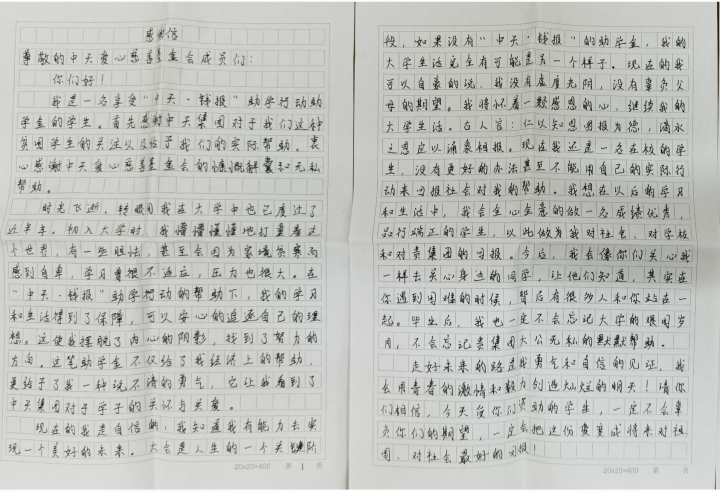 感谢信
尊敬的中天爱心慈善基金会成员们：
你们好！
我是一名享受“中天·钱报”助学行动助
学金的学生。首先感谢中天集团对于我们这种
贫困学生的关注以及给予我们的实际帮助。衷
心感谢中天爱心慈善基金会的慷慨解囊和无私
帮助。
时光飞逝，转眼间我在大学中也已度过了
近半年。初入大学时，我懵懵懂懂地打量着这
个世界，有一些胆怯，甚至会因为家境贫寒而
感到自卑，学习曾很不适应，压力也很大。在
“中天·钱报”助学行动的帮助下，我的学习
和生活得到了保障，可以安心的追逐自己的理
想。这使我摆脱了内心的阴影，找到了努力的
方向。这笔助学金不仅给了我经济上的帮助，
更给予了我一种说不清的勇气，它让我看到了
中天集团对于学子的关怀与关爱。
现在的我是自信的，我知道我有能力去实
现一个美好的未来。大学是人生的一个关键阶
20×20=400 第 1 页
段，如果没有“中天·钱报”的助学金，我的
大学生活完全有可能是另一个样子。现在的我
可以自豪的说，我没有虚度光阴，没有辜负父
母的期望。我将怀着一颗感恩的心，继续我的
大学生活。古人言：仁以知恩图报为德，滴水
之恩应以涌泉相报。现在我还是一名在校的学
生，没有更好的办法甚至不能用自己的实际行
动来回报社会对我的帮助。我想在以后的学习
和生活中，我会全心全意的做一名成绩优秀，
品行端正的学生，以此做为我对社会、对学校
和对贵集团的回报。今后，我会像你们关心我
一样去关心身边的同学，让他们知道，其实在
你遇到困难的时候，背后有很多人和你站在一
起。毕业后，我也一定不会忘记大学的艰困岁
月，不会忘记贵集团大公无私的默默帮助。
走好未来的路是我勇气和自信的见证，我
会用青春的激情和毅力创造灿烂的明天！请你
们相信，今天受你们资助的学生，一定不会辜
负你们的期望，一定会把这份爱变成将来对祖
国、对社会最好的回报！
20×20=400 第 页